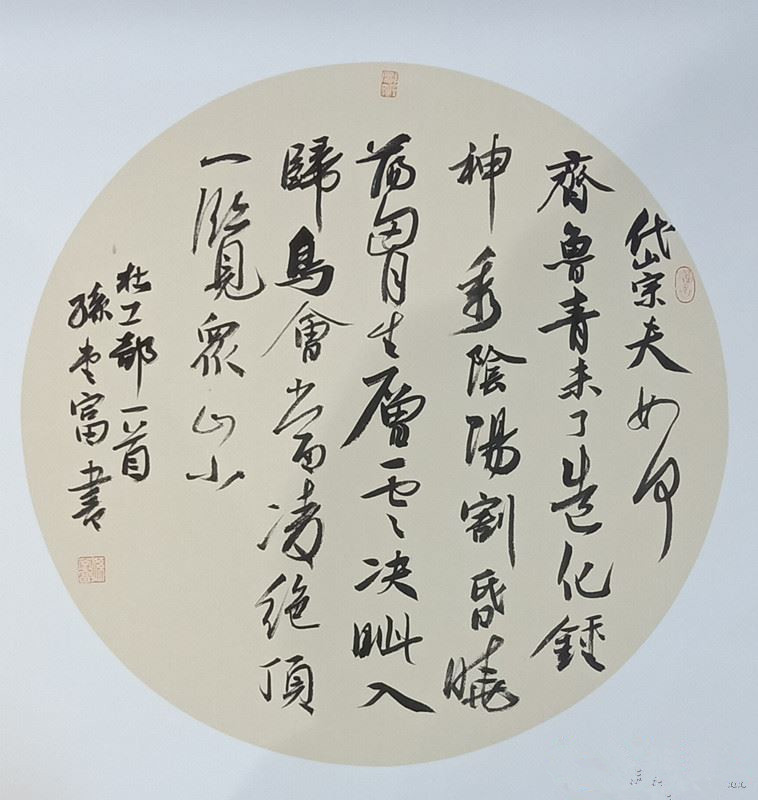 岱宗夫如何
齊魯青未了造化鍾
神秀陰陽割昏曉
蕩胷生層雲決眦入
歸鳥會當凌絕頂
一覽眾山小
杜工部一首
孫富書